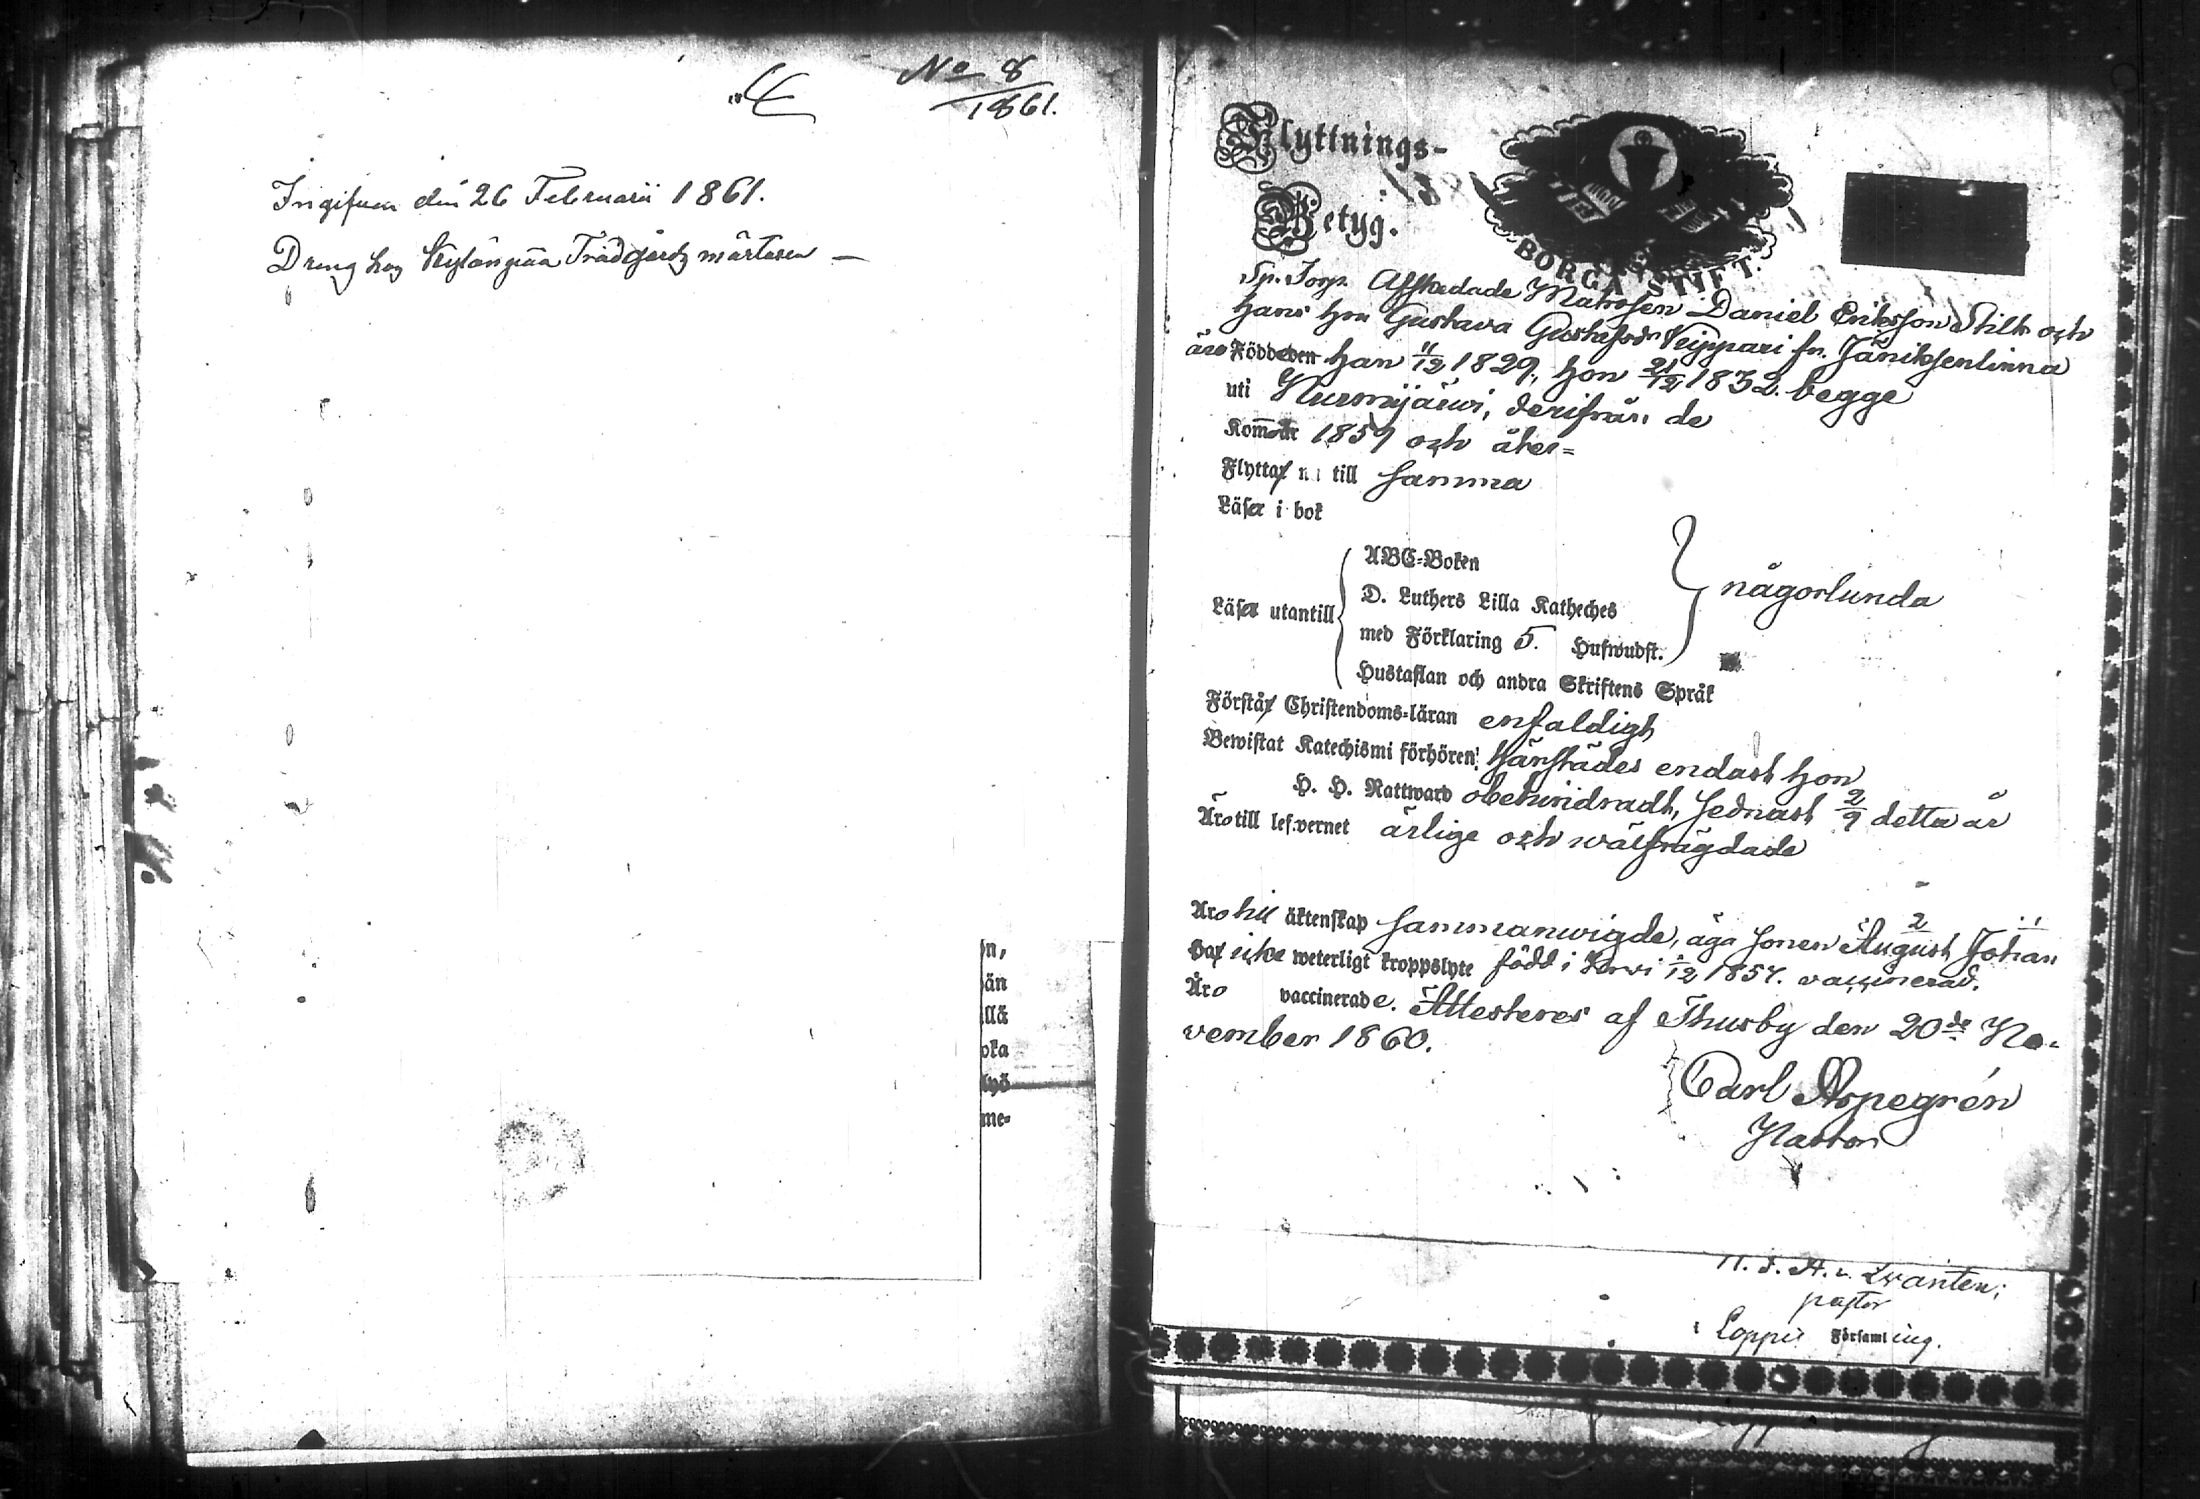 No 8
1861.
Ingifven den 26 Februarii 1861.
Dreng hos Trädgårdsmästaren —
n,
än
llä
oka
lyö
me-
Flyttnings-
Betyg.
BORGÅ STIFT.
Sp. Torp. Afskedade Matrosen Daniel Eriksson Stilk och
hans hru Gustava Gustafsdr Keippari fr. Jäniksenlinna
äro Födde den han 11/12 1829, hon 21/12 1832. begge
uti Nurmijärwi, derifrån de
Kommo 1859 och åter=
Flytta nu till samma
Läsa i bok
ABC-Boken
Läsa utantill D. Luthers Lilla Katheches någorlunda
med Förklaring 5. Hufwudst.
Hustaflan och andra Skriftens Språk
Förstå Christendoms-läran enfaldigt
Bewistat Katechismi förhören: härstädes endast hon
H. H. Nattward obehindradt, sednast 2/9 detta år
Äro till lefvernet ärlige och wälfrägdade
Äro till äktenskap sammanwigde, äga sonen August Johan
Ha icke weterligt kroppslyte född i 2/12 1857. vaccinerad.
Äro vaccinerade. Attesteres af Thusby den 20de No-
vember 1860.
Carl Aspegrén
Pastor
pastor
i Loppis Församling.